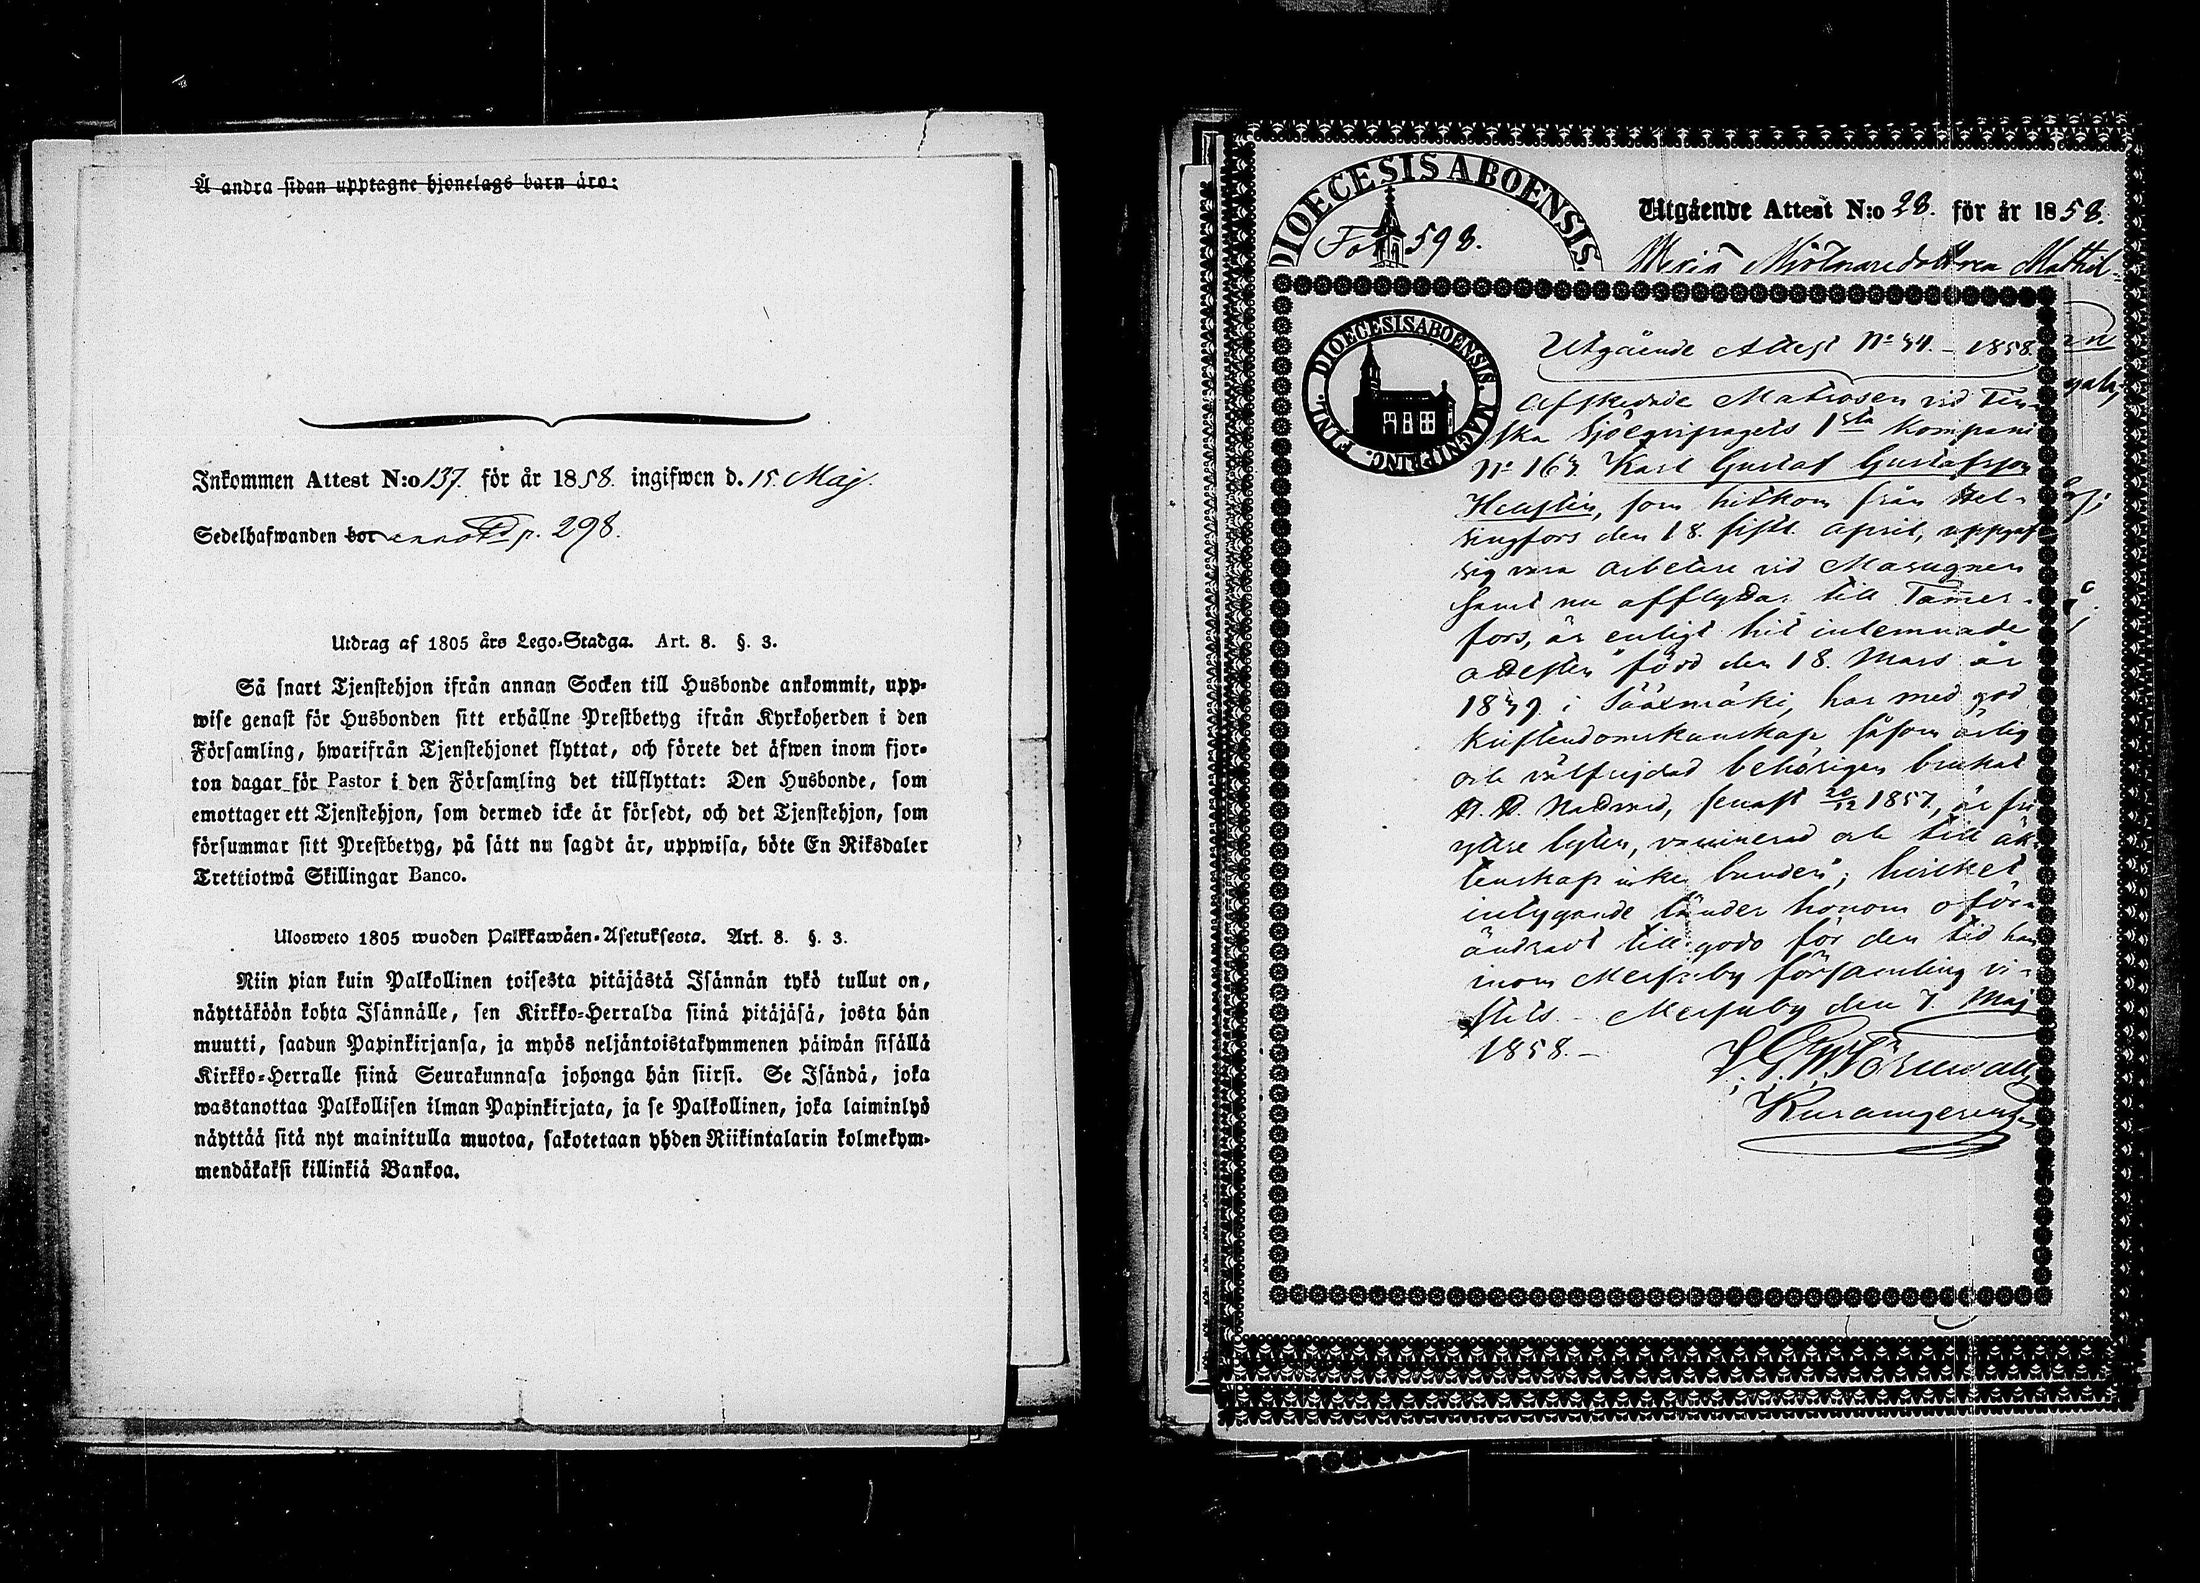 Å andra sidan upptagne hjonelags barn äro:
Inkommen Attest N:o 137. för år 1858. ingifwen d. 15 Maj.
Sedelhafwanden bor annot. p. 298.
Utdrag af 1805 års Lego-Stadga. Art. 8. §. 3.
Så snart Tjenstehjon ifrån annan Socken till Husbonde ankommit, upp-
wise genast för Husbonden sitt erhållne Prestbetyg ifrån Kyrkoherden i den
Församling, hwarifrån Tjenstehjonet flyttat, och förete det äfwen inom fjor-
ton dagar för Pastor i den Församling det tillflyttat: Den Husbonde, som
emottager ett Tjenstehjon, som dermed icke är försedt, och det Tjenstehjon, som
försummar sitt Prestbetyg, på sätt nu sagdt är, uppwisa, böte En Riksdaler
Trettiotwå Skillingar Banco.
Ulosweto 1805 wuoden Palkkawäen-Asetuksesta. Art. 8. §. 3.
Niin pian kuin Palkollinen toisesta pitäjästä Isännän tykö tullut on,
näyttäköön kohta Isännälle, sen Kirkko-Herralda siinä pitäjäsä, josta hän
muutti, saadun Papinkirjansa, ja myös neljäntoistakymmenen päiwän sisällä
Kirkko-Herralle siinä Seurakunnasa johonga hän siirsi. Se Isändä, joka
wastanottaa Palkollisen ilman Papinkirjata, ja se Palkollinen, joka laiminlyö
näyttää sitä nyt mainitulla muotoa, sakotetaan yhden Riikintalarin kolmekym-
mendäkaksi killinkiä Bankoa.
DIOECESIS ABOENSIS.
Fol. 598.
Utgående Attest N:o 28. för år 1858.
Mjölnaredottren Mathil-
DIOECESIS ABOENSIS. MAGNI PRINC. FINL.
Utgående Attest No 34. - 1858.
Afskedade Matrosen vid Fin-
ska Sjöequipagets 1sta Kompani
No 163 Karl Gustaf Gustafsson
som hitkom från Hel-
singfors den 18. sistl. April, uppgaf
sig vara arbetare vid Masugnen
samt nu afflyttar till Tam̄er-
fors, är enligt hit inlemnade
attesten "född den 18. Mars år
1839 i Sääxmäki, har med god
kristendomskunskap såsom ärlig
och välfrejdad behörigen brukat
H. H. Nattvard, senast 20/12 1857, är fri
ytre lyten, vaccinerad och till äk-
tenskap icke bunden"; hvilket
intygande länder honom oför-
ändradt till godo för den tid han
inom församling vi-
stats. - den 7 Maj
1858. -